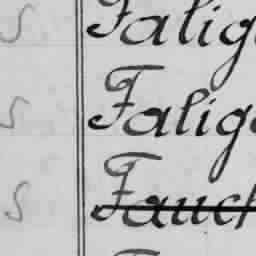 S Falig
S Falig
S Fauch